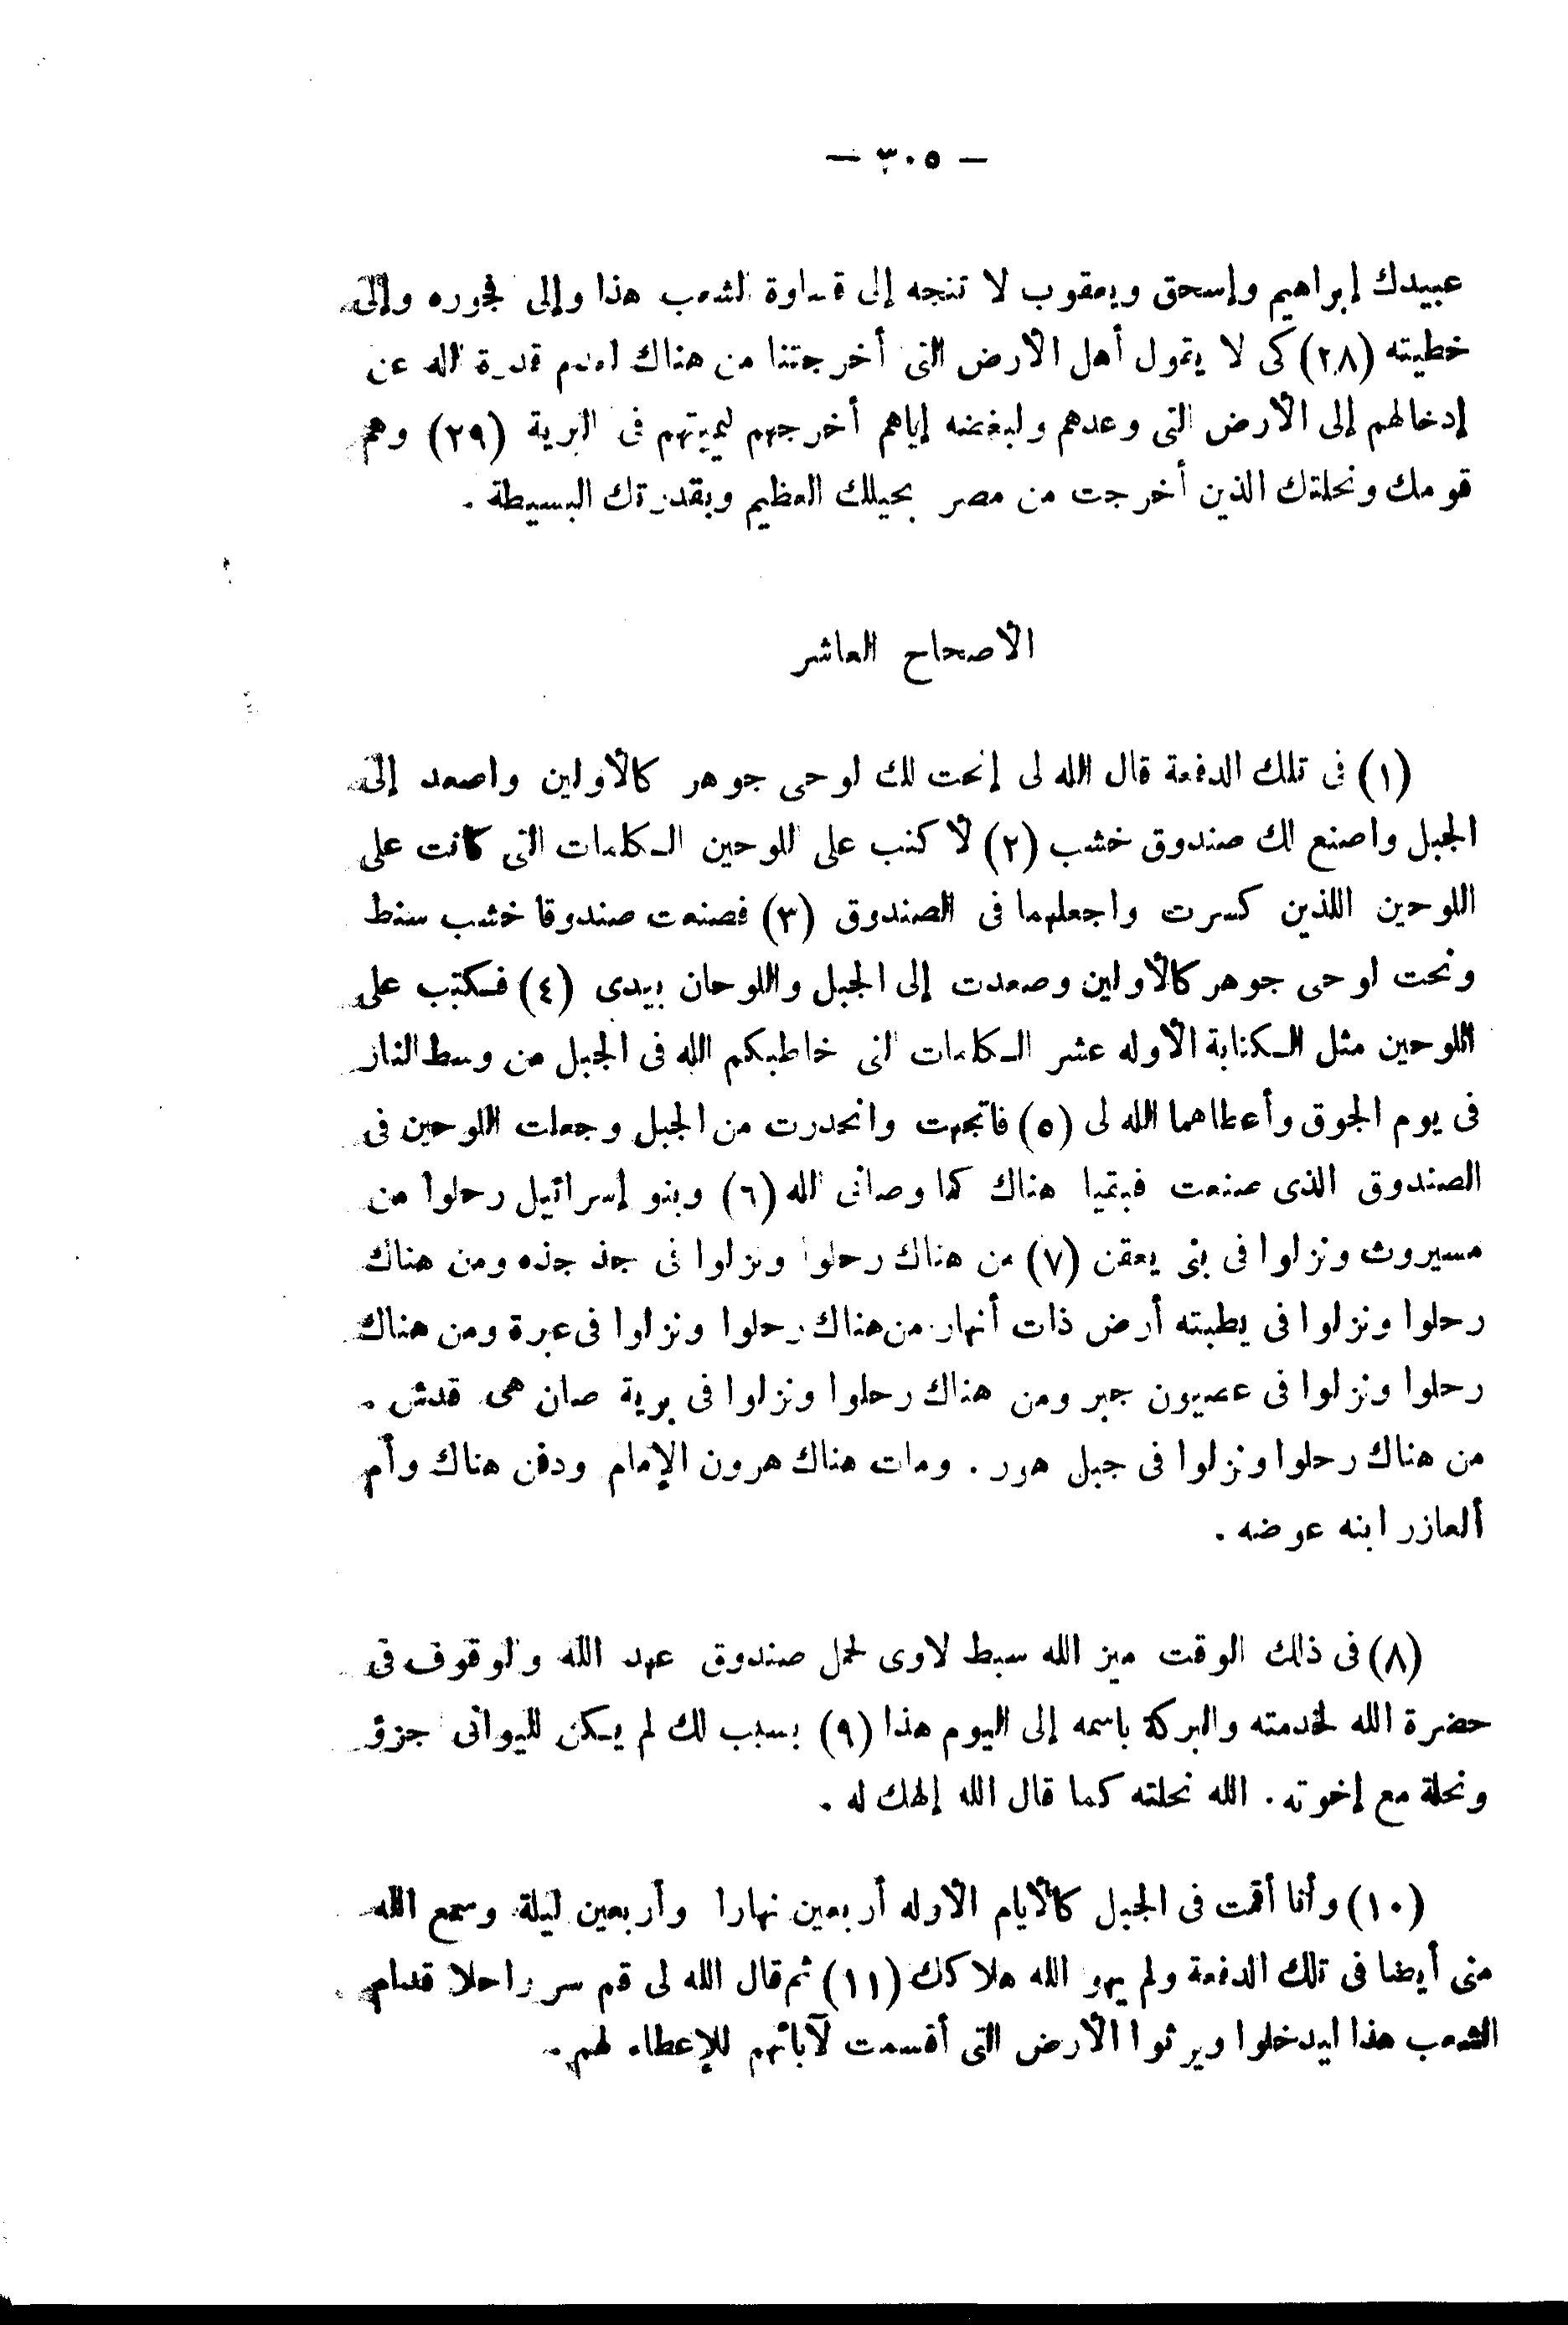 — ٣٠٥ —
عبيدك إبراهيم وإسحق ويعقوب لا تتجه إلى قساوة الشعب هذا وإلى فجوره وإلى
خطيته (٢٨) كى لا يقول أهل الأرض التى أخرجتنا من هناك لعدم قدرة الله عن
إدخالهم إلى الأرض التى وعدهم ولبغضه إياهم أخرجهم ليميتهم فى البرية (٢٩) وهم
قومك ونحلتك الذين أخرجت من مصر بحيلك العظيم وبقدرتك البسيطة .
الأصحاح العاشر
(١) فى تلك الدفعة قال الله لى إنحت لك لوحى جوهر كالأولين واصعد إلى
الجبل واصنع لك صندوق خشب (٢) لأكتب على اللوحين الكلمات التى كانت على
اللوحين اللذين كسرت واجعلهما فى الصندوق (٣) فصنعت صندوقا خشب سنط
ونحت لوحى جوهر كالأولين وصعدت إلى الجبل واللوحان بيدى (٤) فكتب على
اللوحين مثل الكتابة الأوله عشر الكلمات التى خاطبكم الله فى الجبل من وسط النار
فى يوم الجوق وأعطاهما الله لى (٥) فاتجهت وانحدرت من الجبل وجعلت اللوحين فى
الصندوق الذى صنعت فبقيا هناك كما وصانى الله (٦) وبنو إسرائيل رحلوا من
مسيروث ونزلوا فى بنى يعقن (٧) من هناك رحلوا ونزلوا فى جذ جذه ومن هناك
رحلوا ونزلوا فى يطبته أرض ذات أنهار. من هناك رحلوا ونزلوا فى عبرة ومن هناك
رحلوا ونزلوا فى عصيون جبر ومن هناك رحلوا ونزلوا فى برية صان هى قدش .
من هناك رحلوا ونزلوا فى جبل هور . ومات هناك هرون الإمام ودفن هناك وأم
ألعازر ابنه عوضه .
(٨) فى ذلك الوقت ميز الله سبط لاوى لحمل صندوق عهد الله والوقوف فى
حضرة الله لخدمته والبركة باسمه إلى اليوم هذا (٩) بسبب لك لم يكن لليوانى جزؤ
ونحلة مع إخوته . الله نحلته كما قال الله إلهك له .
(١٠) وأنا أقمت فى الجبل كالأيام الأوله أربعين نهارا وأربعين ليلة وسمع الله
منى أيضا فى تلك الدفعة ولم يهو الله هلاكك (١١) ثم قال الله لى قم سر راحلا قدام
الشعب هذا ليدخلوا ويرثوا الأرض التى أقسمت لآبائهم للإعطاء لهم .